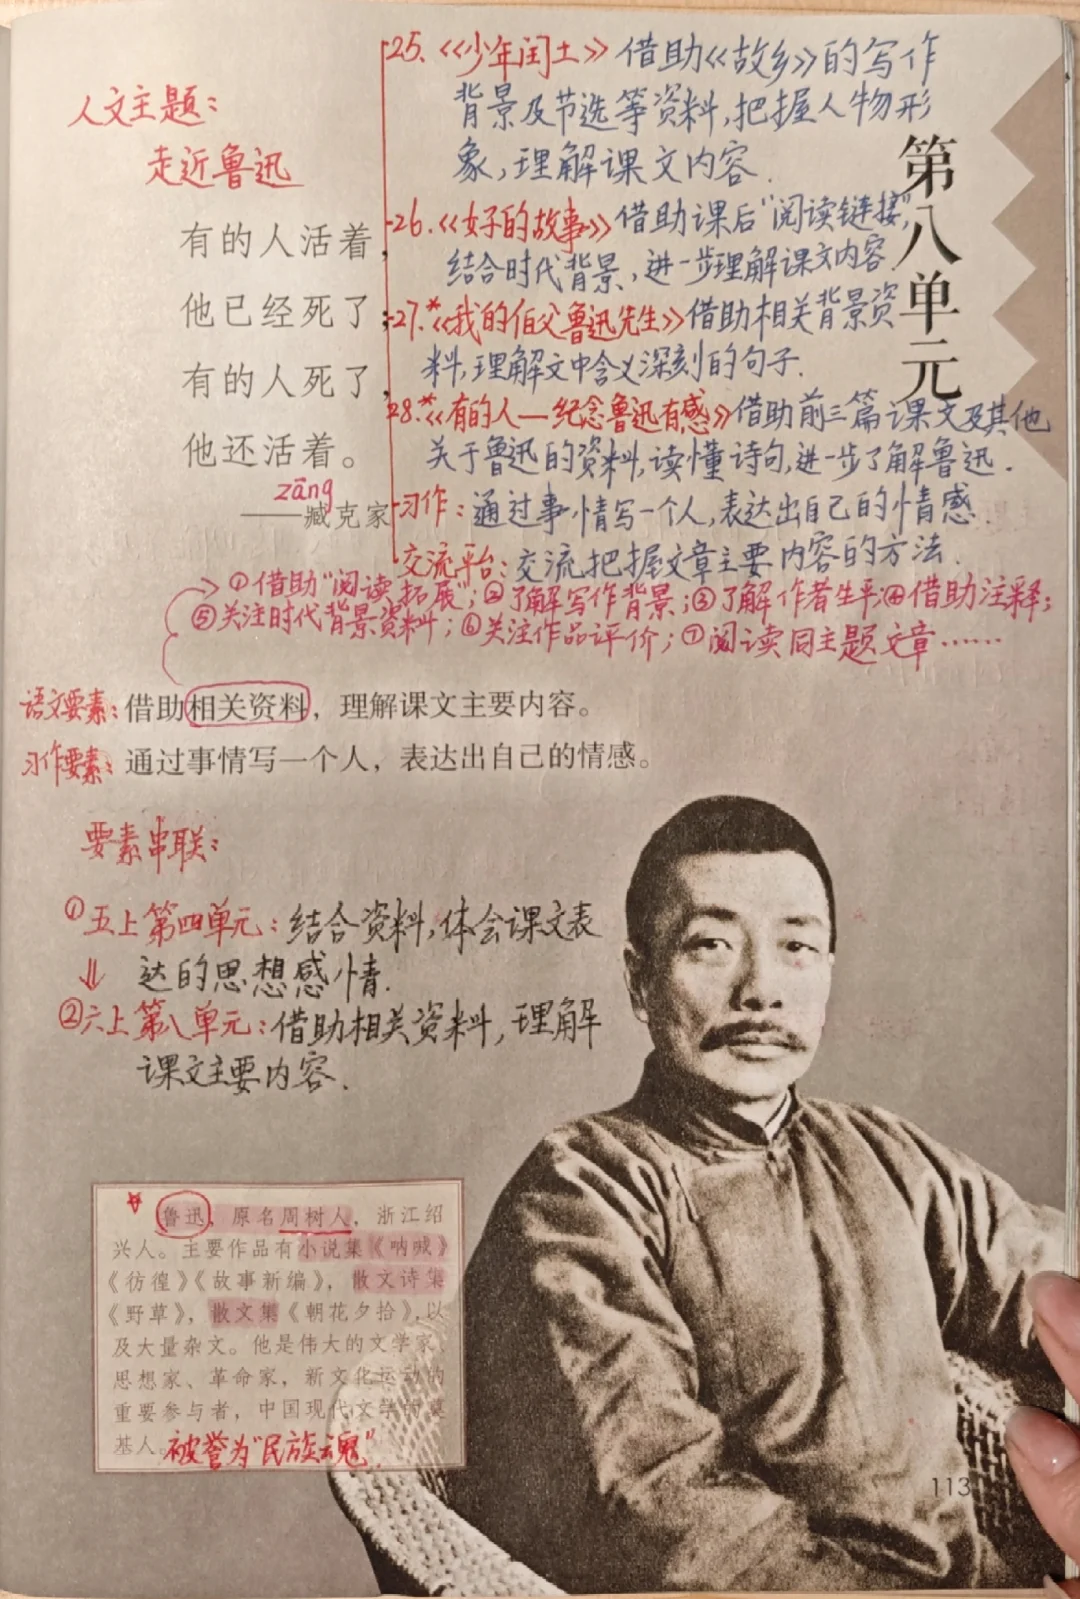 人文主题：
走近鲁迅
有的人活着，
他已经死了；
有的人死了，
他还活着。
zāng
——臧克家
25.《少年闰土》借助《故乡》的写作
背景及节选等资料,把握人物形
象,理解课文内容.
26.《好的故事》借助课后"阅读链接",
结合时代背景,进一步理解课文内容.
27.*《我的伯父鲁迅先生》借助相关背景资
料,理解文中含义深刻的句子.
28.*《有的人—纪念鲁迅有感》借助前三篇课文及其他
关于鲁迅的资料,读懂诗句,进一步了解鲁迅.
习作:通过事情写一个人,表达出自己的情感.
交流平台:交流把握文章主要内容的方法.
第八单元
①借助"阅读拓展";②了解写作背景;③了解作者生平;④借助注释;
⑤关注时代背景资料;⑥关注作品评价;⑦阅读同主题文章……
语文要素:借助相关资料，理解课文主要内容。
习作要素:通过事情写一个人，表达出自己的情感。
要素串联:
①五上第四单元:结合资料,体会课文表
达的思想感情.
②六上第八单元:借助相关资料,理解
课文主要内容.
鲁迅，原名周树人，浙江绍
兴人。主要作品有小说集《呐喊》
《彷徨》《故事新编》，散文诗集
《野草》，散文集《朝花夕拾》，以
及大量杂文。他是伟大的文学家、
思想家、革命家，新文化运动的
重要参与者，中国现代文学的奠
基人。被誉为"民族魂".
113